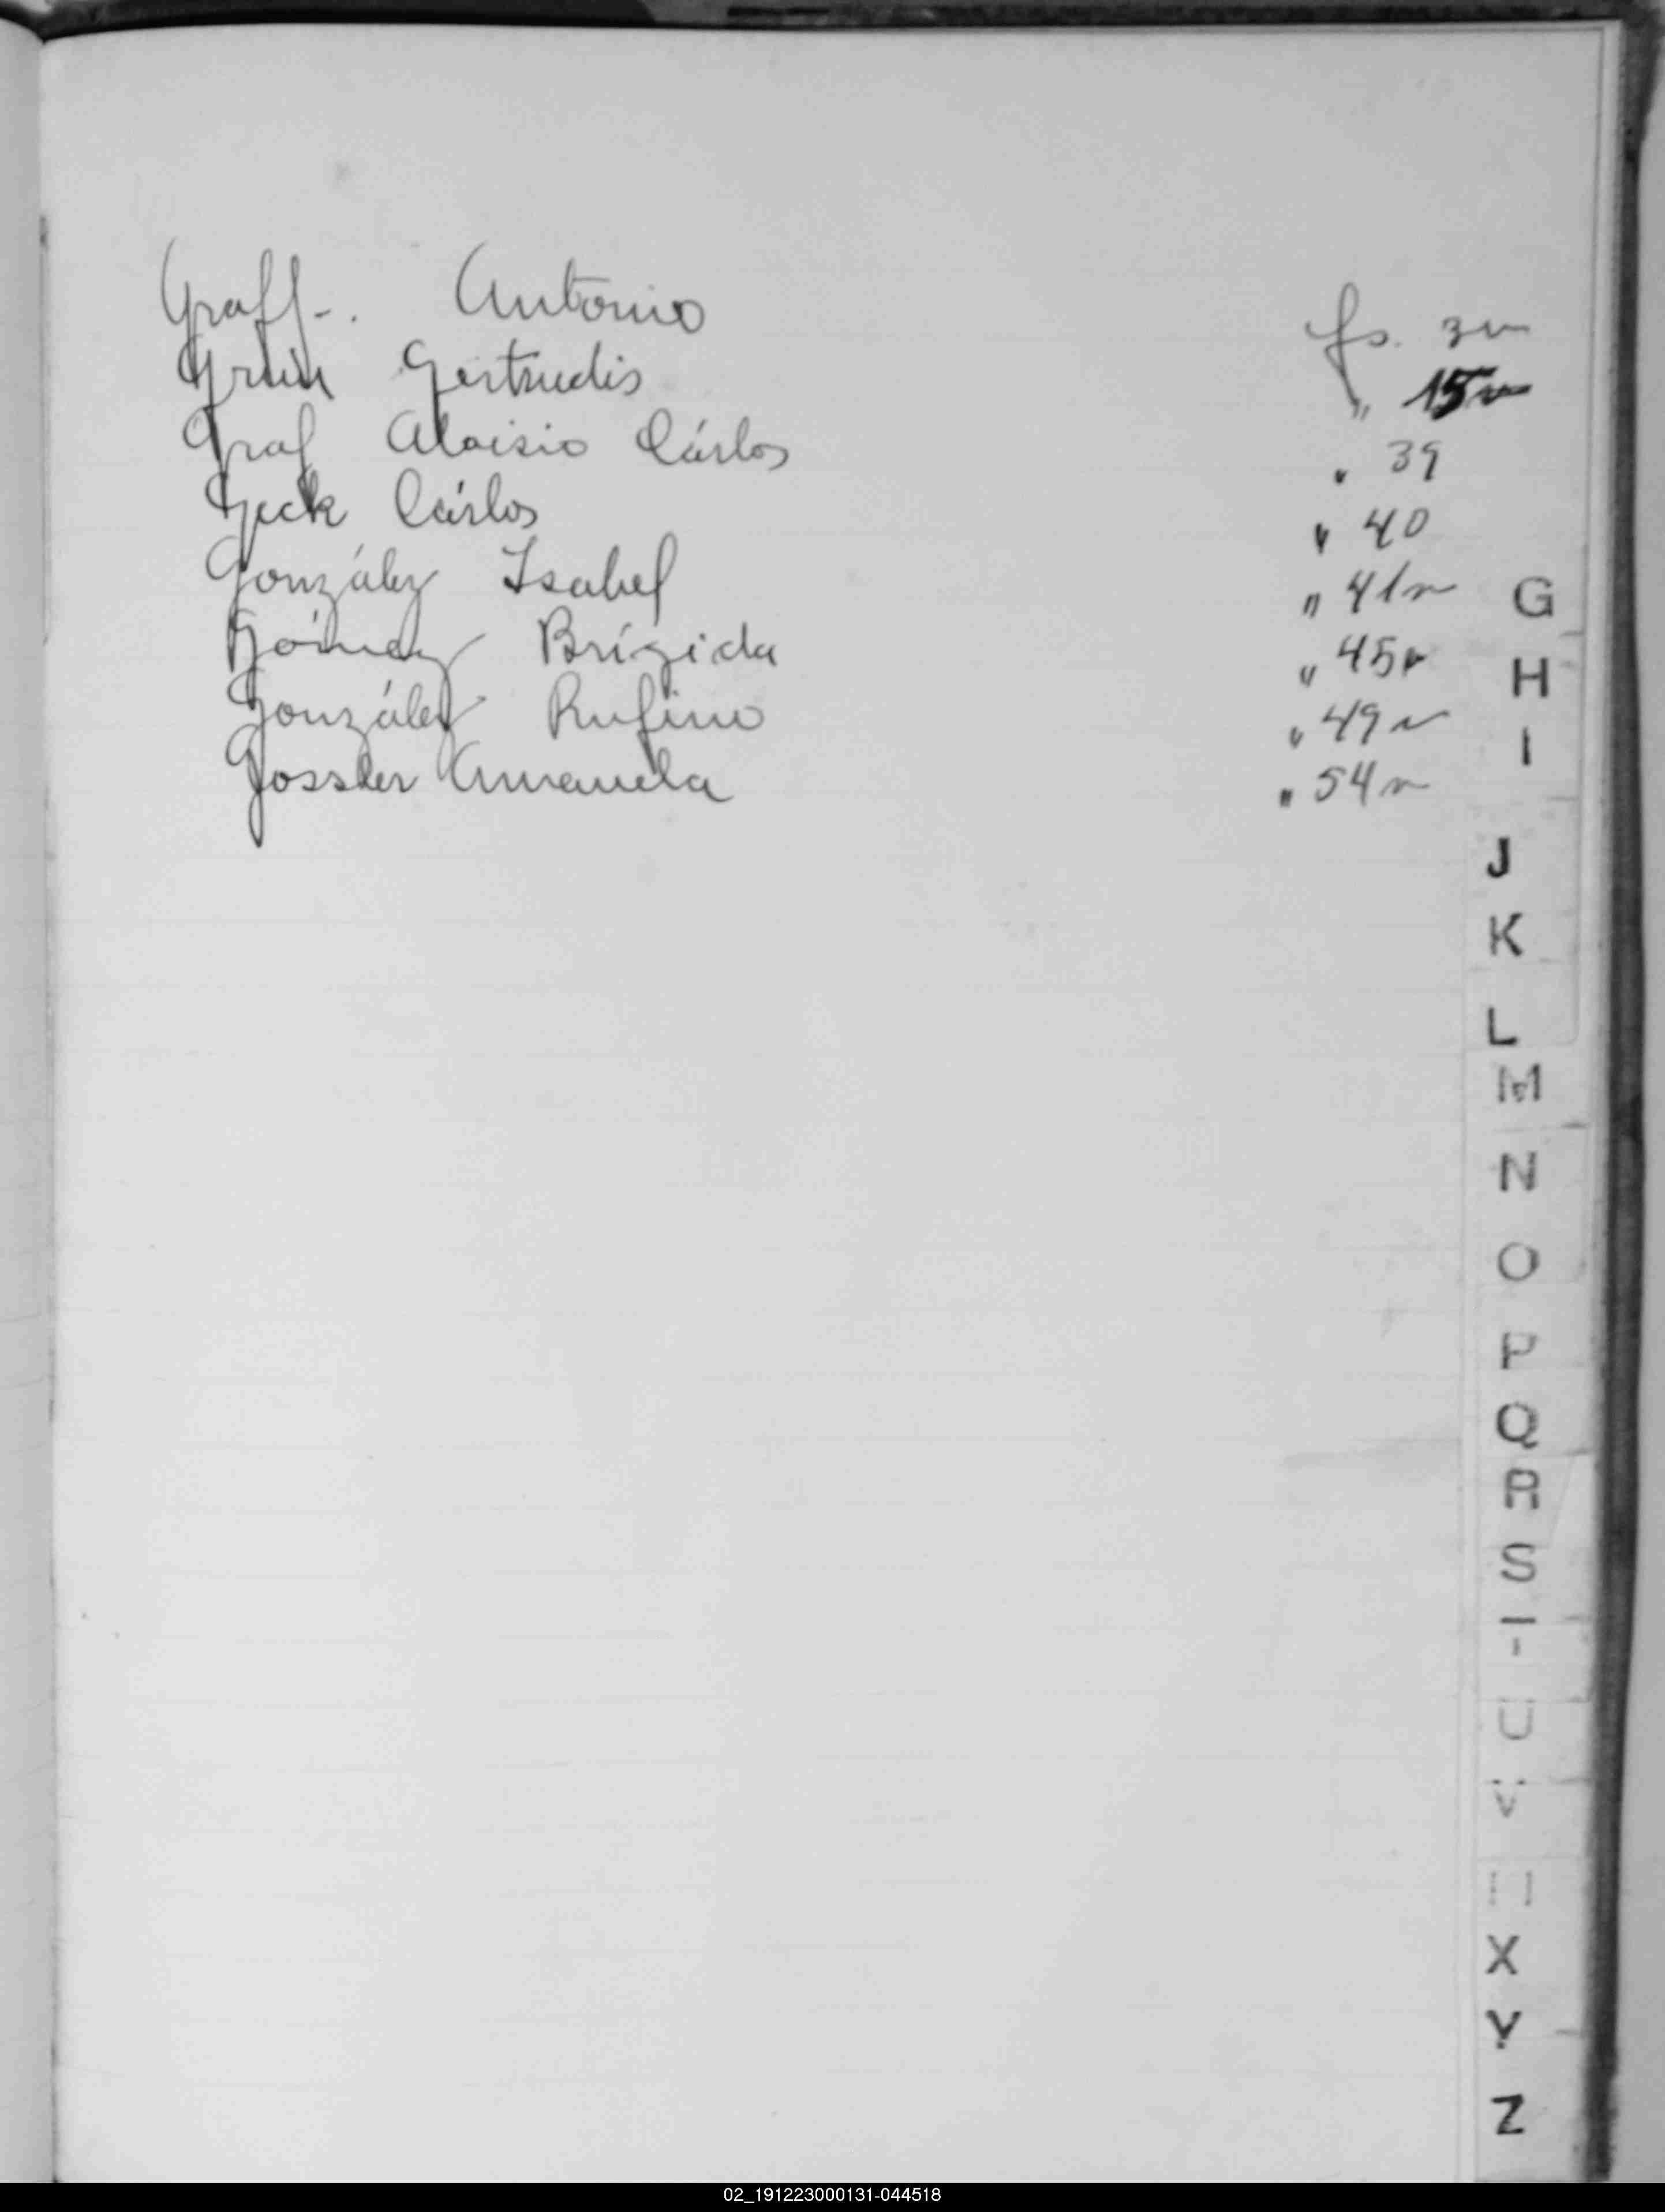 Graff-. Antonio fs. 3v
Grün Gertrudis " 15v
Graf Aloisio Cárlos " 39
Geck Cárlos " 40
González Isabel " 41v
Gómez Brígida " 45v
González Rufino " 49v
Gossler Amanda " 54v
G
H
I
J
K
L
M
N
O
P
Q
R
S
T
U
V
X
Y
Z
02_191223000131-044518